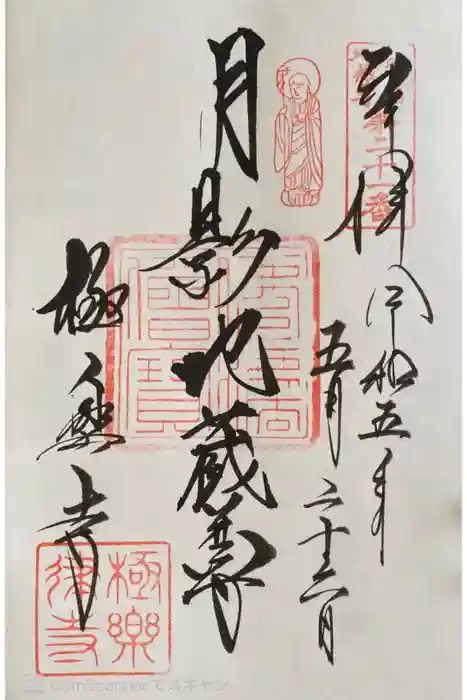 奉拝
第二十一番
令和五年
五月二十六日
月影地蔵尊
極楽寺
極樂
律寺
CamScanner でスキャン